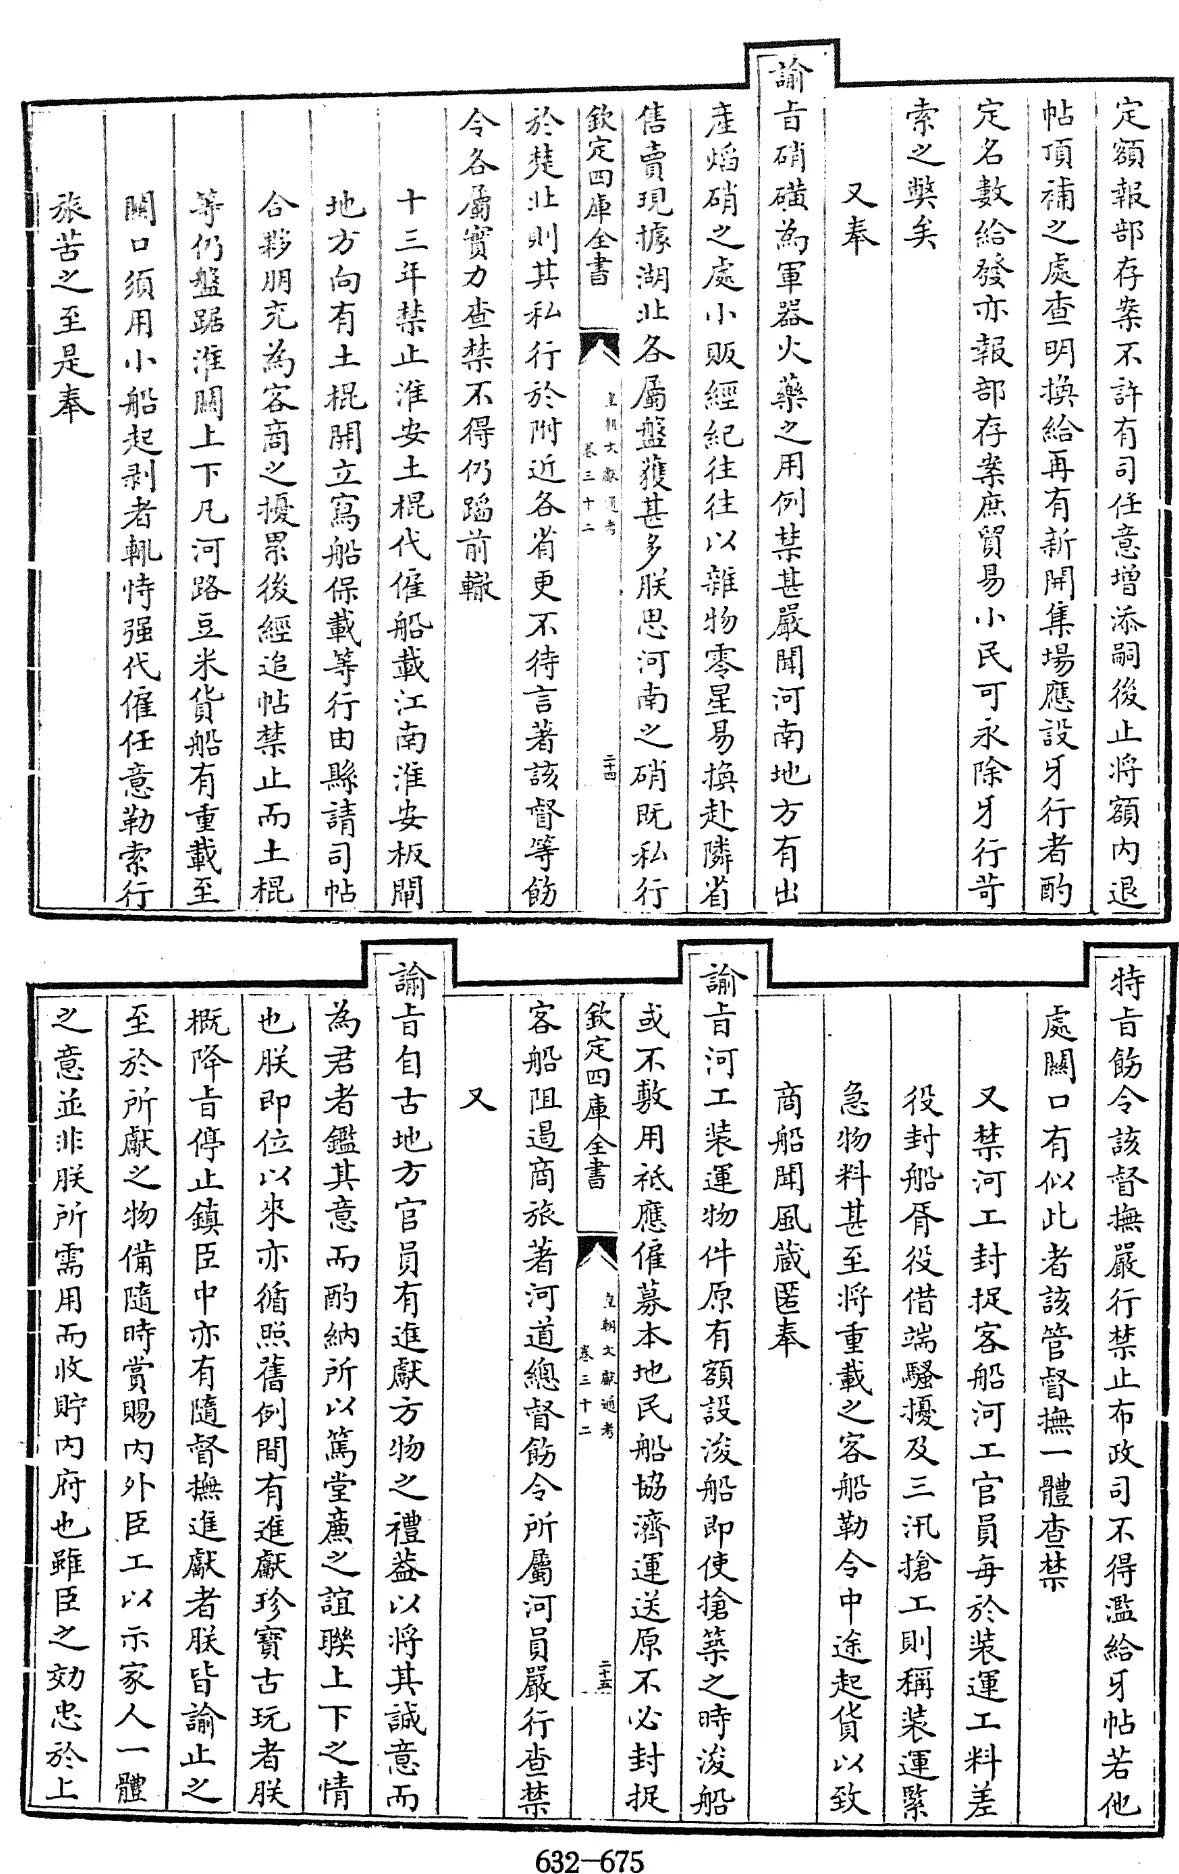 定額報部存案不許有司任意增添嗣後止將額内退
帖頂補之處查明換給再有新開集場應設牙行者酌
定名數給發亦報部存案庶貿易小民可永除牙行苛
索之弊矣
又奉
諭㫖硝磺為軍器火藥之用例禁甚嚴聞河南地方有出
產焰硝之處小販經紀往往以雜物零星易換赴隣省
售賣現據湖北各屬盤獲甚多朕思河南之硝既私行
欽定四庫全書
皇朝文獻通考
卷三十二
二十四
於楚北則其私行於附近各省更不待言著該督等飭
令各屬實力查禁不得仍蹈前轍
十三年禁止淮安土棍代僱船載江南淮安板閘
地方向有土棍開立寫船保載等行由縣請司帖
合夥朋充為客商之擾累後經追帖禁止而土棍
等仍盤踞淮關上下凡河路豆米貨船有重載至
關口須用小船起剥者輒恃强代僱任意勒索行
旅苦之至是奉
特㫖飭令該督撫嚴行禁止布政司不得濫給牙帖若他
處關口有似此者該管督撫一體查禁
又禁河工封捉客船河工官員每於装運工料差
役封船胥役借端騷擾及三汛搶工則稱装運緊
急物料甚至將重載之客船勒令中途起貨以致
商船聞風藏匿奉
諭㫖河工装運物件原有額設浚船即使搶築之時浚船
或不敷用祗應僱募本地民船協濟運送原不必封捉
欽定四庫全書
皇朝文獻通考
卷三十二
二十五
客船阻遏商旅著河道總督飭令所屬河員嚴行查禁
又
諭㫖自古地方官員有進獻方物之禮葢以將其誠意而
為君者鑑其意而酌納所以篤堂廉之誼聯上下之情
也朕即位以來亦循照舊例間有進獻珍寳古玩者朕
概降㫖停止鎮臣中亦有隨督撫進獻者朕皆諭止之
至於所獻之物備隨時賞賜内外臣工以示家人一體
之意並非朕所需用而收貯内府也雖臣之効忠於上
632—675